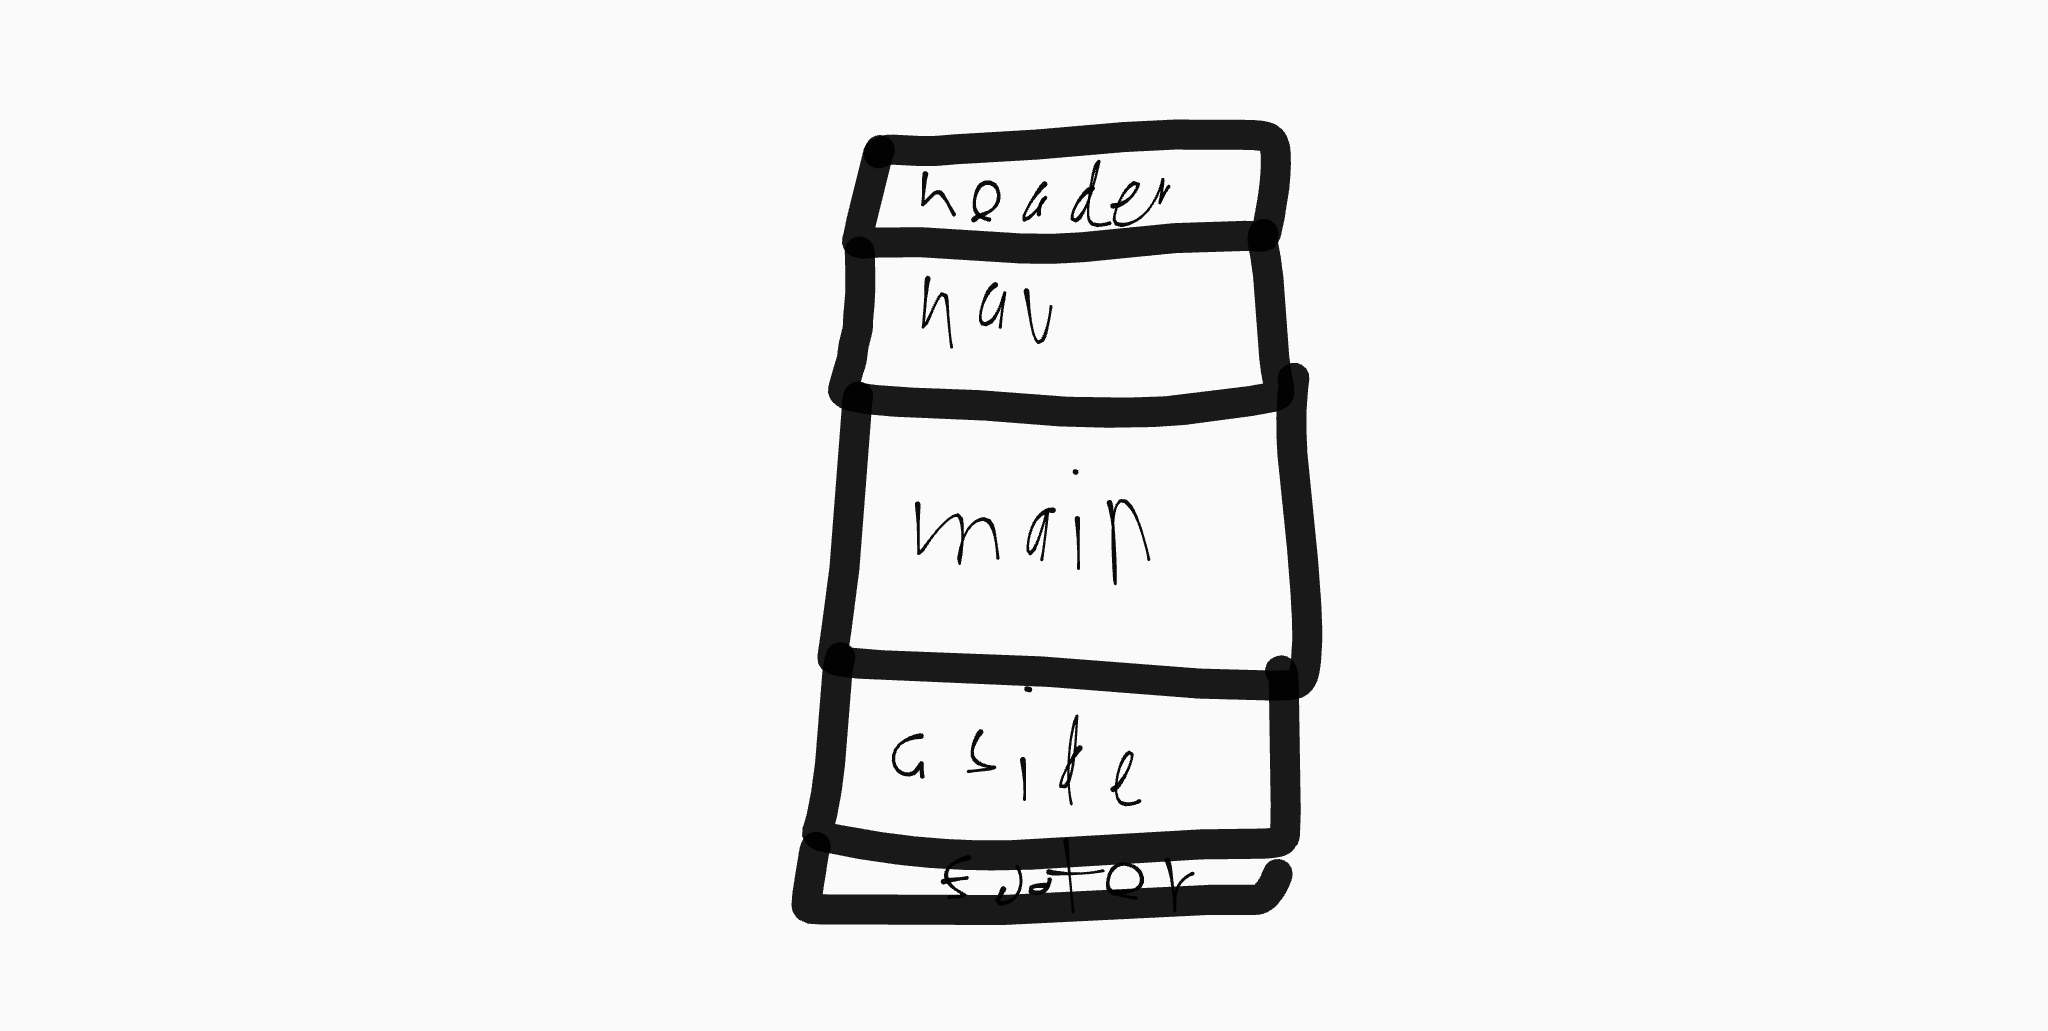 header
nav
main
aside
footer